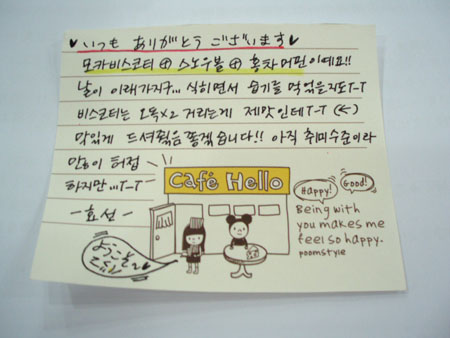 ♥ いつも ありがとう ございます ♥
모카비스코티 ⊕ 스노우볼 ⊕ 홍차머핀이예요!!
날이 이래가지구... 식히면서 습기를 먹었을지도T-T
비스코티는 오독X2 거리는게 제맛인데T-T (<-)
맛있게 드셔줬음 좋겠습니다!! 아직 취미수준이라
많이 허접
하지만...T-T
- 효선 -
Café Hello
Happy!
Good!
Being with
you makes me
feel so happy.
poomstyle
ようこそ